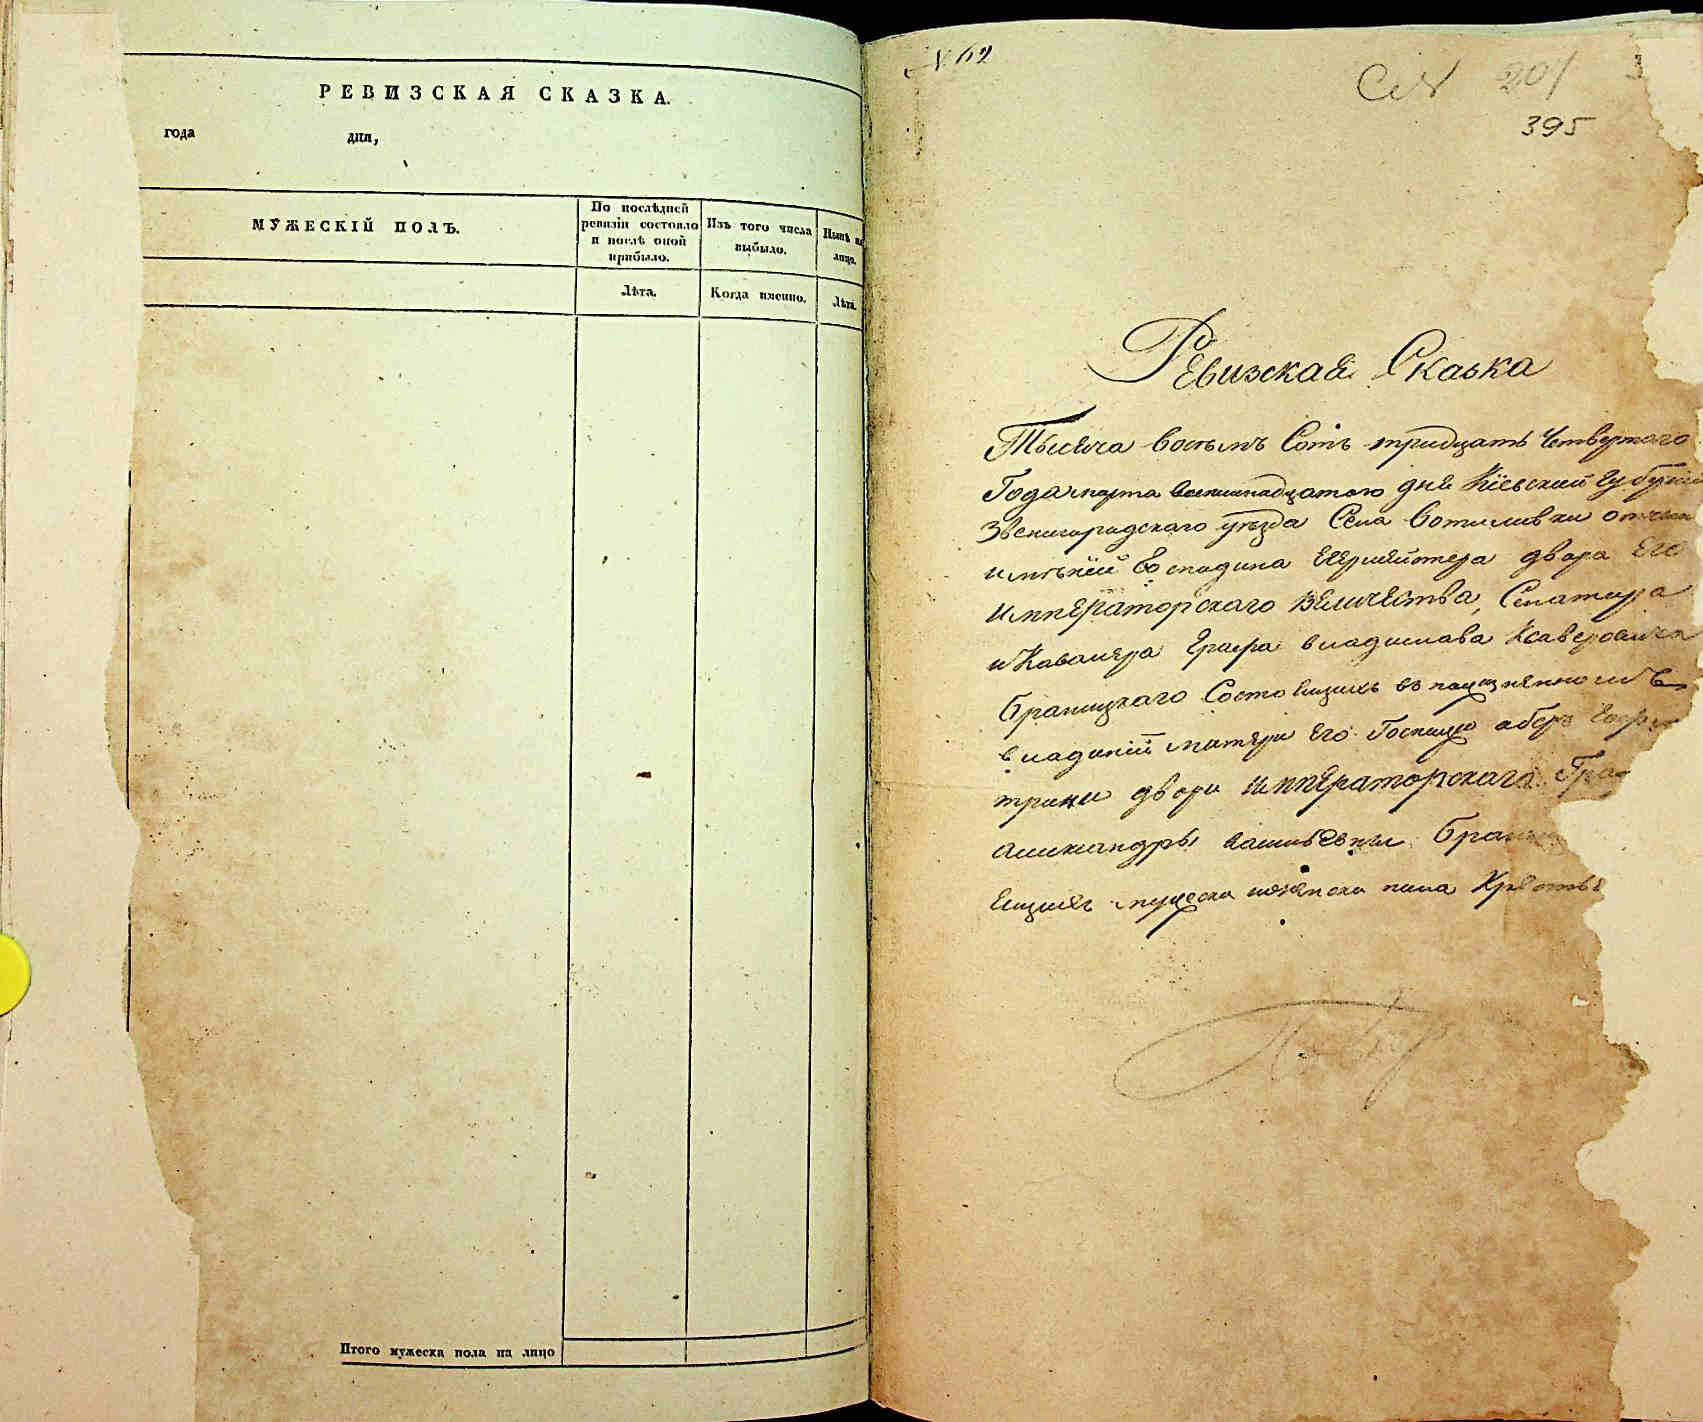 РЕВИЗСКАЯ СКАЗКА.
года дня,
МУЖЕСКІЙ ПОЛЪ.
По послѣдней
ревизіи состояло
и послѣ оной
прибыло.
Изъ того числа
выбыло.
Нынѣ на
лицо.
Лѣта.
Когда именно.
Лѣта.
Итого мужеска пола на лицо
№ 62
201
395
Ревизская Сказка
Тысяча восемь Сотъ тридцать Четвертого
Года марта дня Кіевской Губерніи
Звенигородского уезда Села
имѣній Господина Егермейстера двора Его
императорского величества, Сенатора
и Кавалера Графа владислава Ксаверовича
браницкаго въ
владѣніи матери Его Госпожи оберъ
двора императорского
александры васильевны
мужеска женска пола